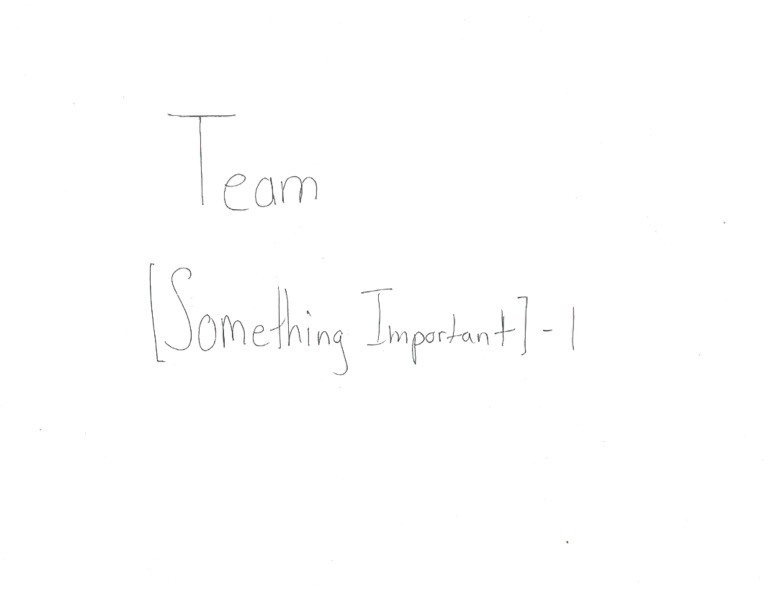 Team
[Something Important] - 1